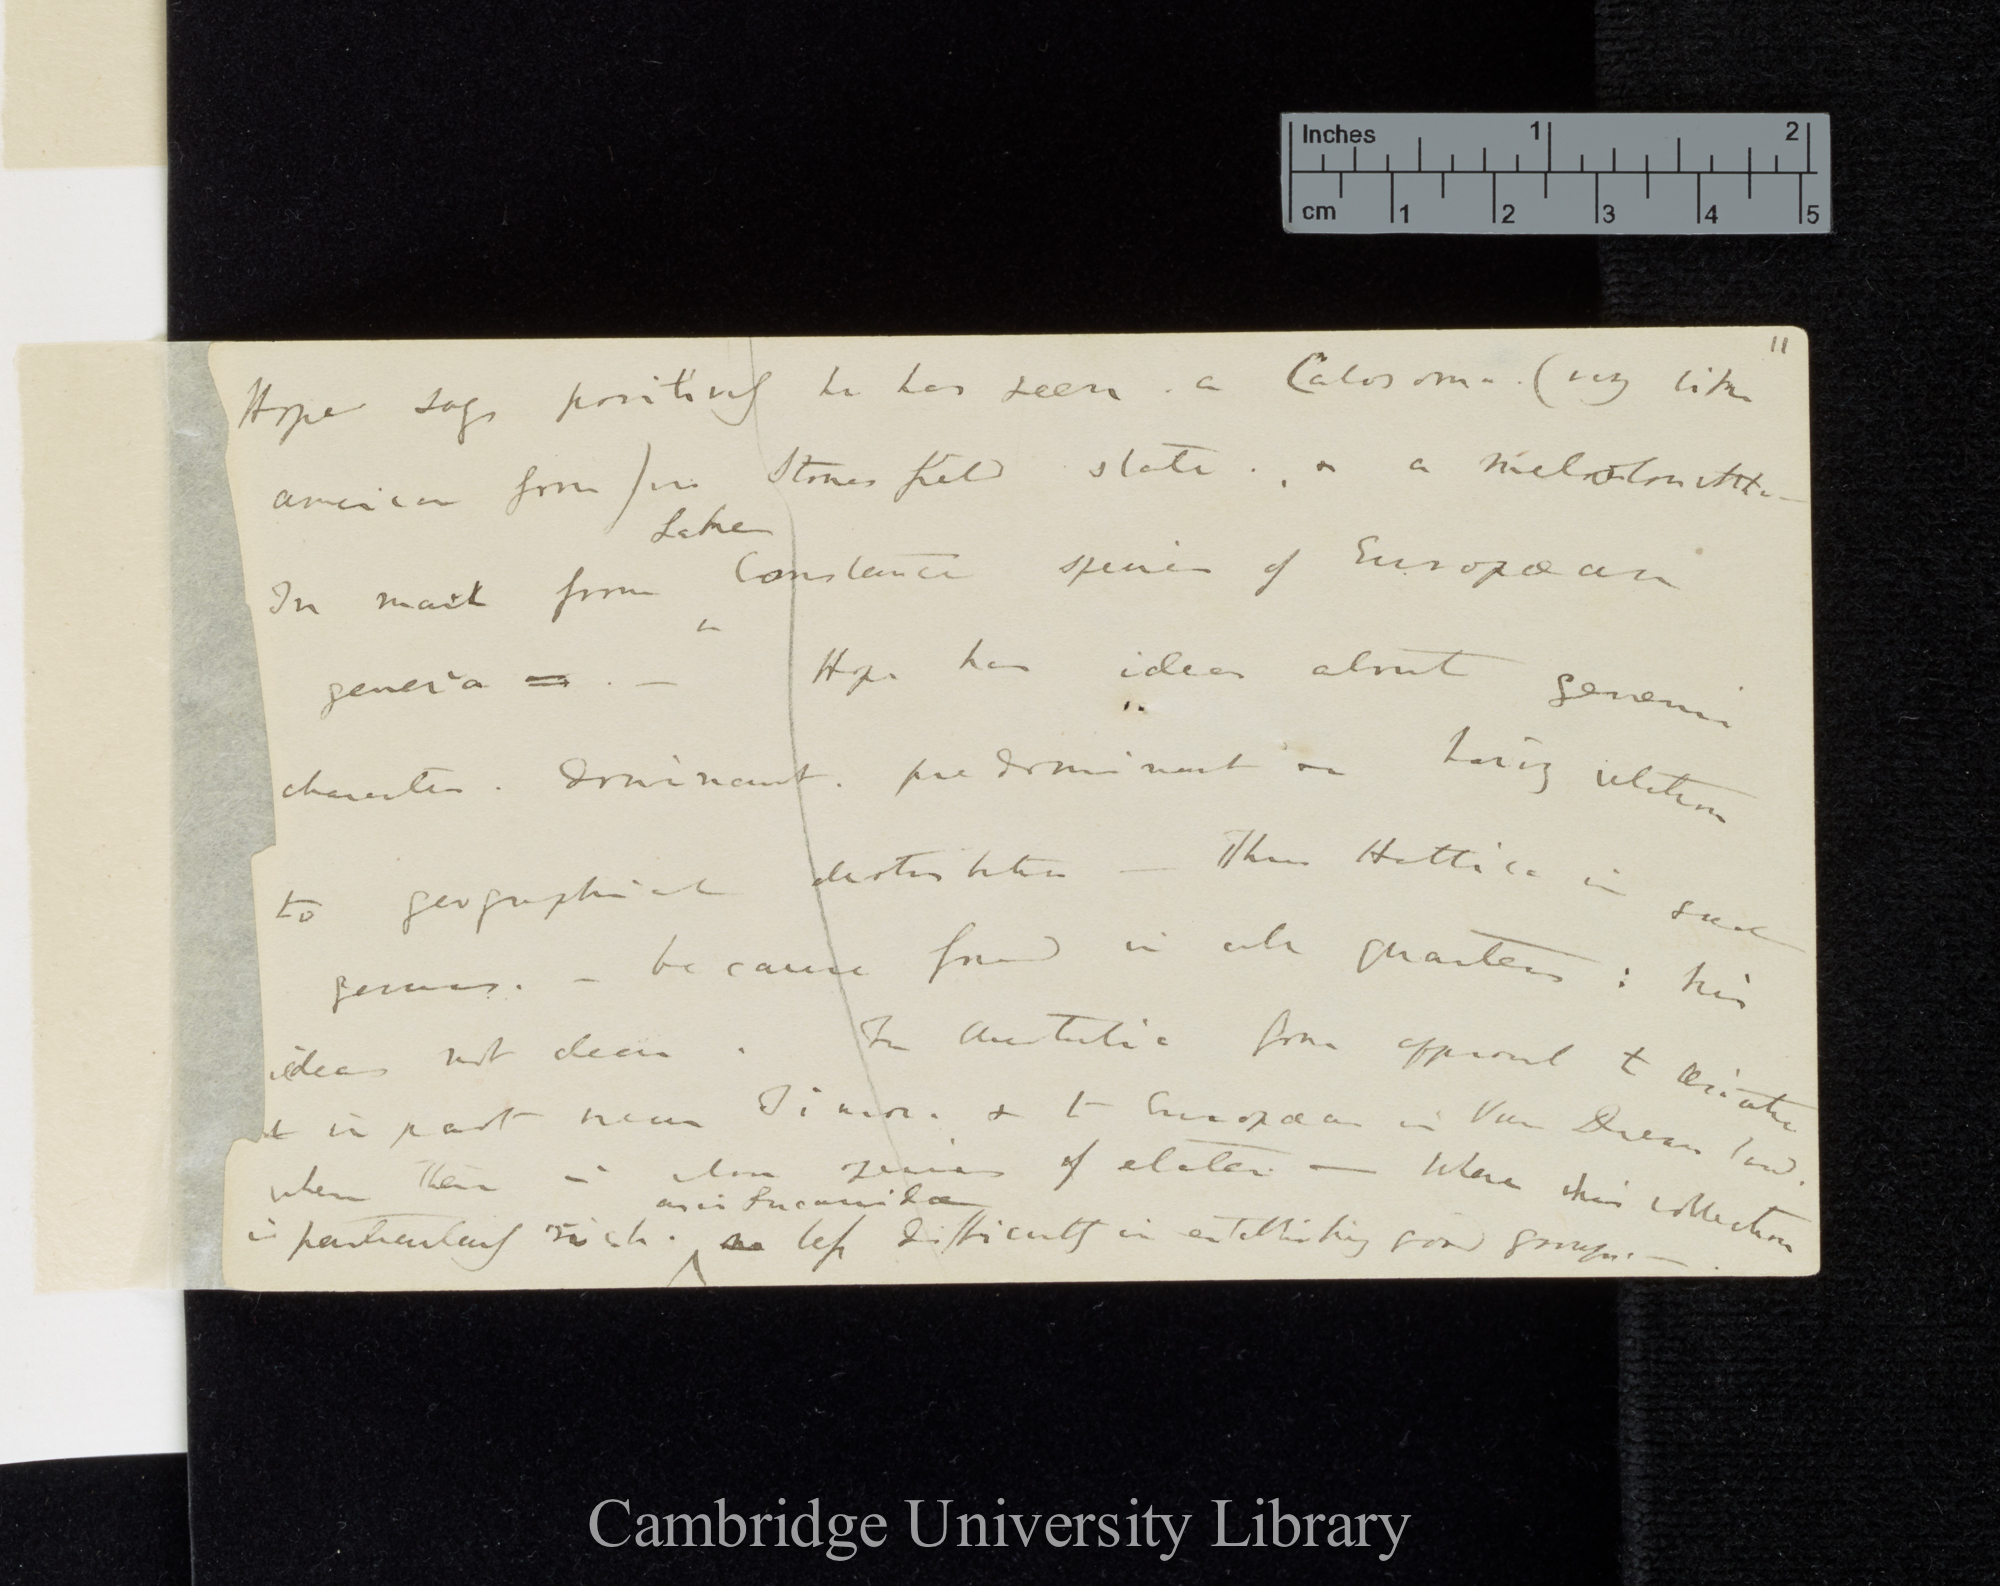 Inches 1 2
cm 1 2 3 4 5
11
Hope says positively he has seen a Calosoma. (very like
american form) in Stonesfield slate. , & a
Lake
In marl from Constance species of Europæan
genera = . — Hope has ideas about generic
character. Dominant. predominant or having relation
to geographical distribution — Thus Haltica is such
genus. — because found in all quarters : his
ideas not clear . In Australia form approach to Asiatic
in part near Timor. & to Europæan in Van Diemen land.
when there is species of elater. — Where this collection
as in Lucanidæ
is particularly rich. less difficulty in establishing good groups. —
Cambridge University Library